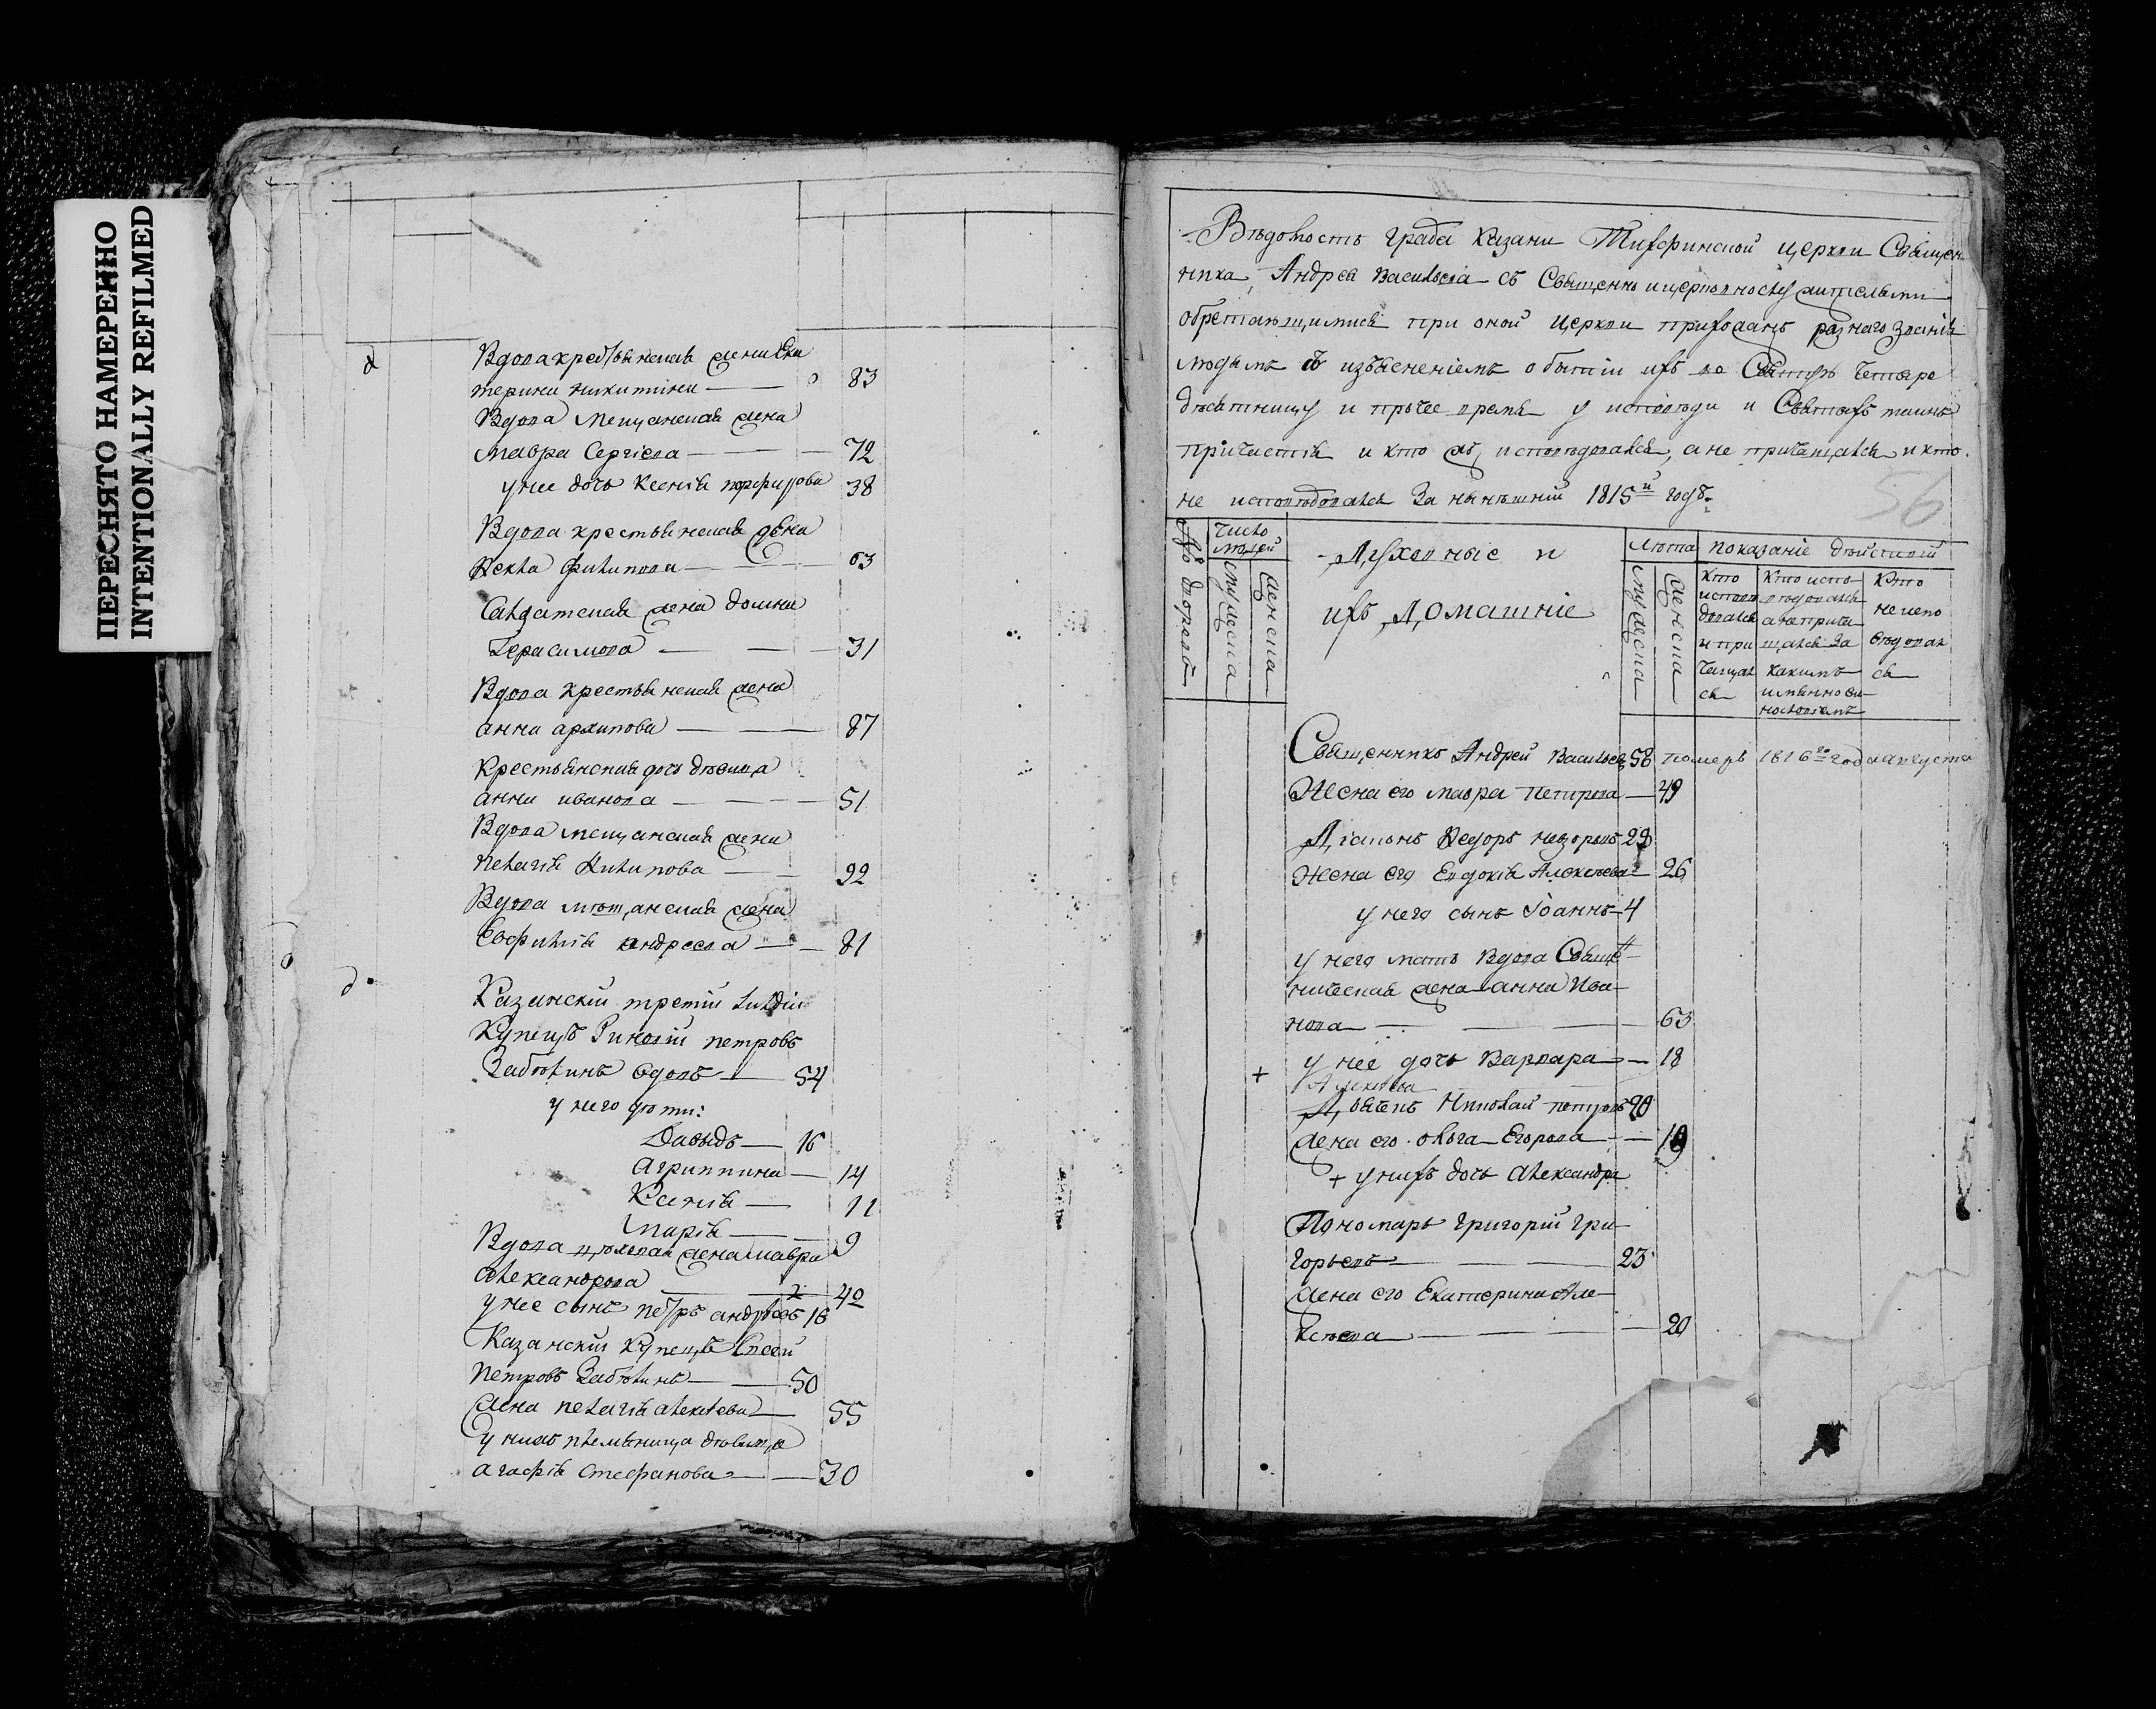 ПЕРЕСНЯТО НАМЕРЕННО
INTENTIONALLY REFILMED
Вдова крестьянская жена Ека
терина никитина 83
Вдова мещанская жена
мавра Сергіева 72
у нее дочь ксенія порфирова 38
Вдова крестьянская жена
Ѳекла филипова 63
Салдатская жена домна
Герасимова 31
Вдова крестьянская жена
анна архипова 87
Крестьянская дочь девица
анна иванова 51
Вдова мещанская жена
пелагія Филипова 92
Вдова мещанская жена
Евфимія андреева 81
Казанскій третій гилдіи
Купецъ петровъ
Заботинъ вдовъ 54
у него дѣти:
Давыдъ 16
Агриппина 14
Ксенія 11
марія 9
Вдова цеховая жена мавра
александрова 40
у нее сынъ петръ андреевъ 18
Казанскій Купецъ
петровъ Заботинъ 50
жена пелагія алексѣева 55
у нихъ племяница девица
агафія Стефанова 30
Вѣдомость града Казани Тихфинской церкви Священ
ника Андрея Васильева съ Священно и церковнослужительми
обретающимися при оной церкви приходацкъ разнаго званія
людьмъ съ изъясненіемъ о бытіи ихъ во Святую Четыре
десятницу и прочее время у исповѣди и Святыхъ таинъ
причастія и кто исповѣдовался, а не причащался и кто
не исповѣдовался За нынѣшній 1815й годъ
56
Число дворовъ
Число людей
мужеска
женска
Духовные и
ихъ Домашніе
лѣта
мужеска
женска
показаніе дѣйствій
Кто исповѣдовался и причащался
Кто исповѣдовался а не причащался за какимъ имянно
Кто не исповѣдовался
Священникъ Андрей Васильевъ 58 померъ 1816го года августа
Жена его мавра петрова 49
Діаконъ Ѳедоръ невзоровъ 29
Жена его Евдокія Алексѣева 26
у него сынъ Іоаннъ 4
у него мать Вдова Священ
ническая жена анна Ива
нова 63
у нее дочь Варвара 18
Алексѣева
Дьячекъ Николай петровъ 20
жена его Ольга Егорова 19
+ у нихъ дочь Александра
Пономарь Григорій Гри
горьевъ 23
жена его Екатерина Але
ксѣева 20